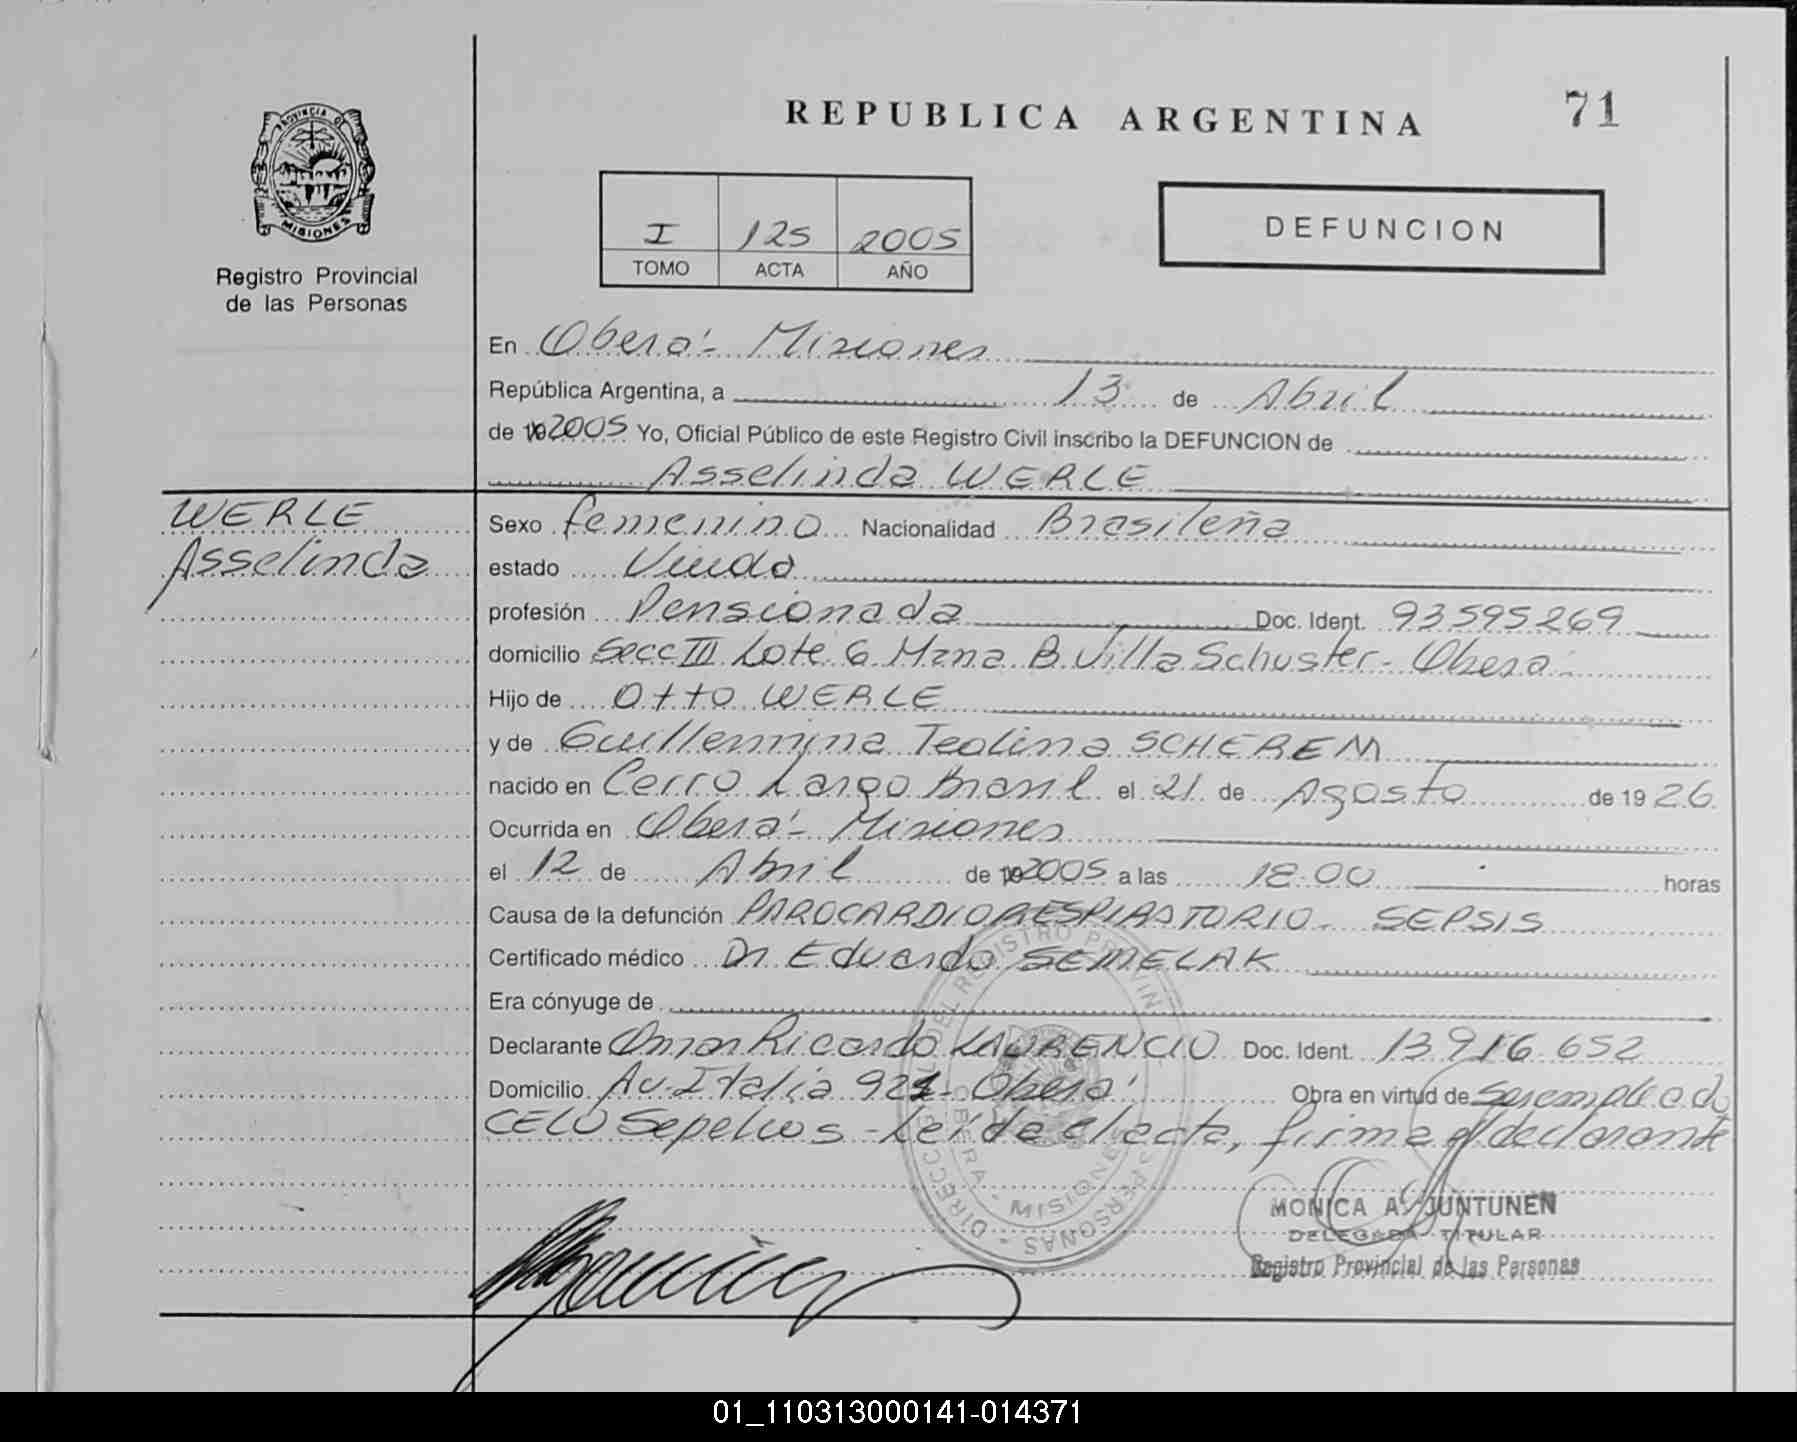 REPUBLICA ARGENTINA
71
PROVINCIA DE
MISIONES
Registro Provincial
de las Personas
I 125 2005
TOMO ACTA AÑO
DEFUNCION
En Oberá - Misiones
República Argentina, a 13 de Abril
de 2005 Yo, Oficial Público de este Registro Civil inscribo la DEFUNCION de
Asselinda WERLE
WERLE
Asselinda
Sexo femenino Nacionalidad Brasileña
estado Viuda
profesión Pensionada Doc. Ident. 93595269
domicilio Secc III Lote 6 Mzna B Villa Schuster - Oberá
Hijo de Otto WERLE
y de Guillermina Teolina SCHEREM
nacido en Cerro Largo Brasil el 21 de Agosto de 1926
Ocurrida en Oberá - Misiones
el 12 de Abril de 2005 a las 18:00 horas
Causa de la defunción PAROCARDIORESPIRATORIO - SEPSIS
Certificado médico Dr. Eduardo SEMELAK
Era cónyuge de
Declarante Omar Ricardo LAURENCIO Doc. Ident. 13916652
Domicilio Av. Italia 921 - Oberá Obra en virtud de ser empleado
CELO Sepelios - Leída el acta, firma el declarante
MONICA A. JUNTUNEN
DELEGADA TITULAR
Registro Provincial de las Personas
01_110313000141-014371